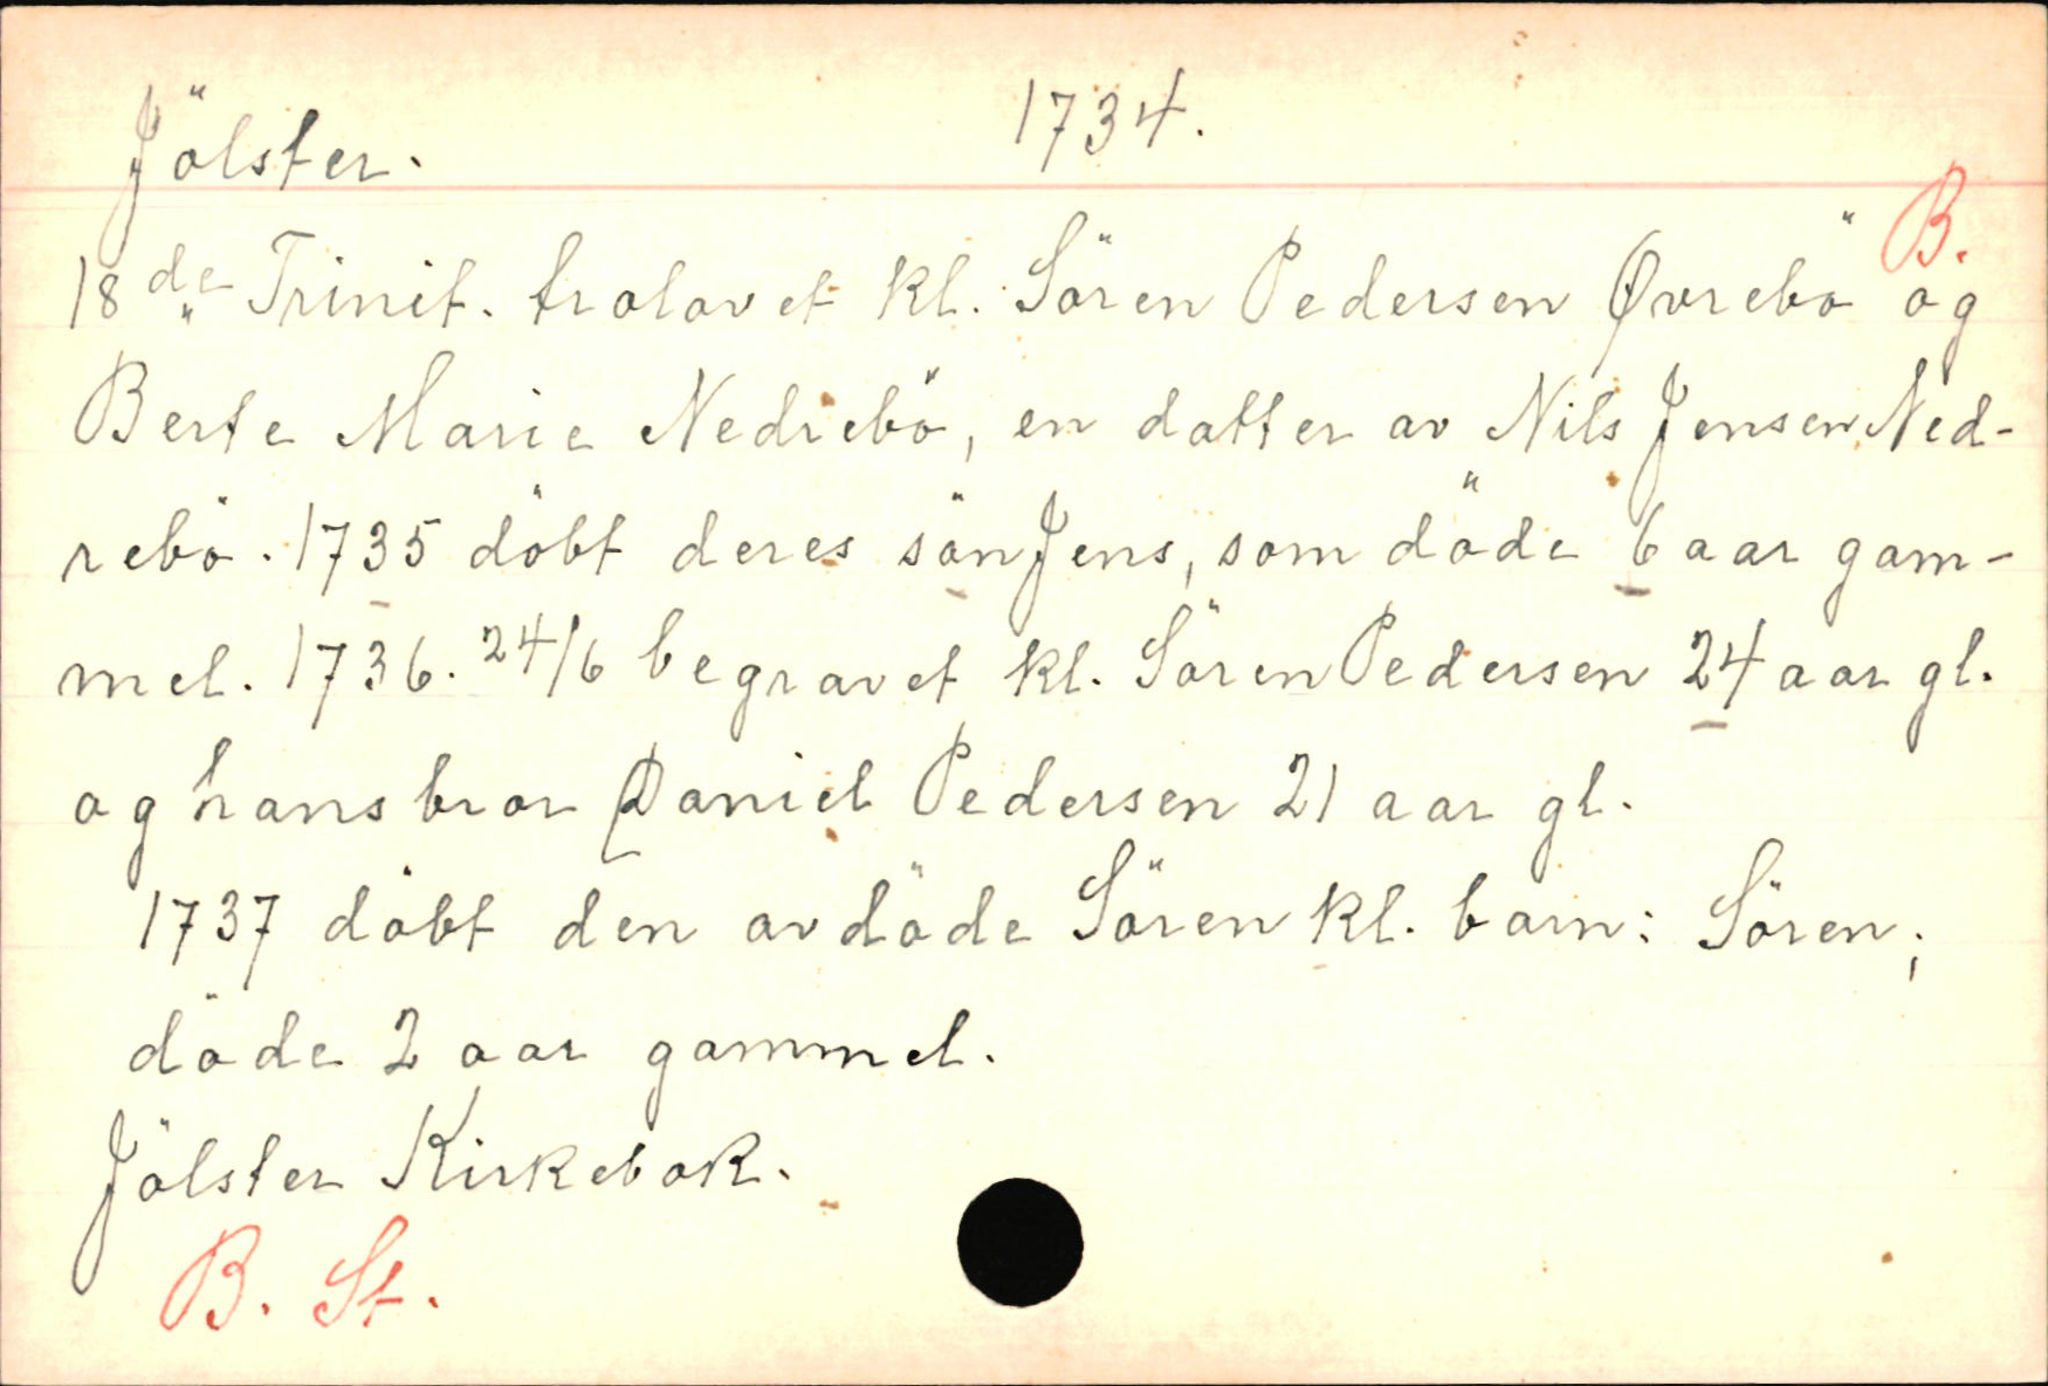 Jölster. 1734.
B.
18de Trinit. trolovet kl. Sören Pedersen Øvrebö og
Berte Marie Nedrebö, en datter av Nils Jensen Ned-
rebö. 1735 döbt deres sön Jens, som döde 6 aar gam-
mel. 1736. 24/6 begravet kl. Sören Pedersen 24 aar gl.
og hans bror Daniel Pedersen 21 aar gl.
1737 döbt den avdöde Sören kl. barn: Sören;
döde 2 aar gammel.
Jölster Kirkebok.
B. St.